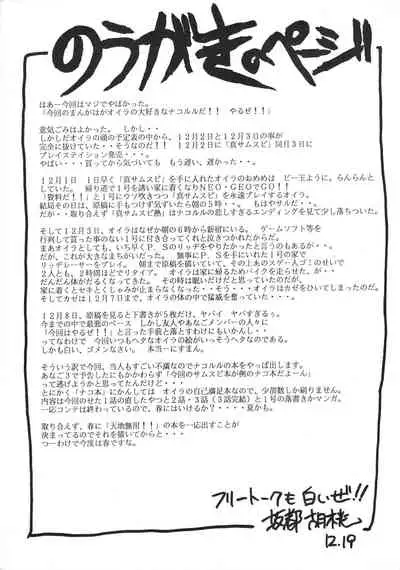 のうがきのページ
はあー今回はマジでやばかった。
「今回のまんがはがオイラの大好きなナコルルだ！！　やるぜ！！」
意気ごみはよかった。　しかし・・
しかしだオイラの頭の予定表の中から、12月2日と12月3日の事が
完全に抜けていた・・そうなのだ！！　12月2日に「真サムスピ」同月3日に
プレイステイション発売・・・。
やばい・・・買ってから気づいても　もう遅い、遅かった・・。
12月1日　1日早く「真サムスピ」を手に入れたオイラのおめめは　ど一玉ように、らんらんと
していた。　帰り道で1号を誘い家に着くなりNEO・GEOでGO！！
「資料だ！！」と1号にウソ吹きつつ「真サムスピ」を永遠プレイするオイラ。
結局その日は、原稿に手もつけず気づいたら朝の5時・・。　もはやサルだ・・。
だが・・取り合えず「真サムスピ熱」はナコルルの悲しすぎるエンディングを見て少し落ちついた。
そして12月3日、オイラはなぜか朝の6時から新宿にいる。　ゲームソフト等を
行列して買った事のない1号に付き合ってくれと泣きつかれたからだ。
まあオイラとしても、いち早くP．Sのリッヂをやりたかったと言うのもあるが・・。
だが、これが大きなまちがいだった。　無事にP．Sを手にいれた1号の家で
リッヂレーサーをプレイ。　朝まで原稿を描いていて、その上あのスゲー人ゴミのせいで
2人とも、2時間ほどでリタイア。　オイラは家に帰るためバイクを走らせた。が、・・
だんだん体がだるくなってきた。　その時は眠いだけだと思っていたのだが、
家に着くとセキとくしゃみが止まらなくなった・・そう・・・オイラはカゼをひいてしまったのだ。
そしてカゼは12月7日まで、オイラの体の中で猛威を奮っていた・・・。
12月8日、原稿を見ると下書きが5枚だけ、ヤバイ　ヤバすぎるぅ。
今までの中で最悪のペース　しかし友人やあなごメンバーの人々に
「今回はやるぜ！！」と言った手前と落とすわけにもいかんし・・
ってなわけで　今回いつもヘタなオイラの絵がいっそうヘタなのである。
しかも白い、ゴメンなさい。　本当ーにすまん。
そういう訳で今回、当人もすごい不満なのでナコルルの本をやっぱ出します。
あなご3で予告したにもかかわらず「今回のサムスピ本が例のナコ本だよーん」
って逃げようかと思ってたんだけど・・・
とにかく「ナコ本」にかんしては　オイラの自己満足本なので、少部数しか刷りません。
内容は今回のせた1話の直したやつと2話・3話（3話完結）と1号の落書きかマンガ。
一応コンテは終わっているので、春にはいけるか？・・・・夏かも。
取り合えず、春に「天地無用！！」の本を一応出すことが
決まってるのでそれを描いてからと・・・
つーわけで今度は春ですな。
フリートークも白いぜ!!
12.19